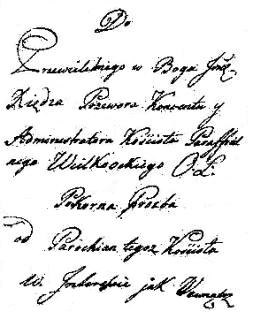 Do
Przewielebnego w Bogu Jmć
Xiędza Przeora Konwentu y
Administratora Kościoła Paraffial
nego Wielkockiego O.L.
Pokorna Prozba
od Parochian tegoż Kościoła
w Jnteressie jak Wewnątrz